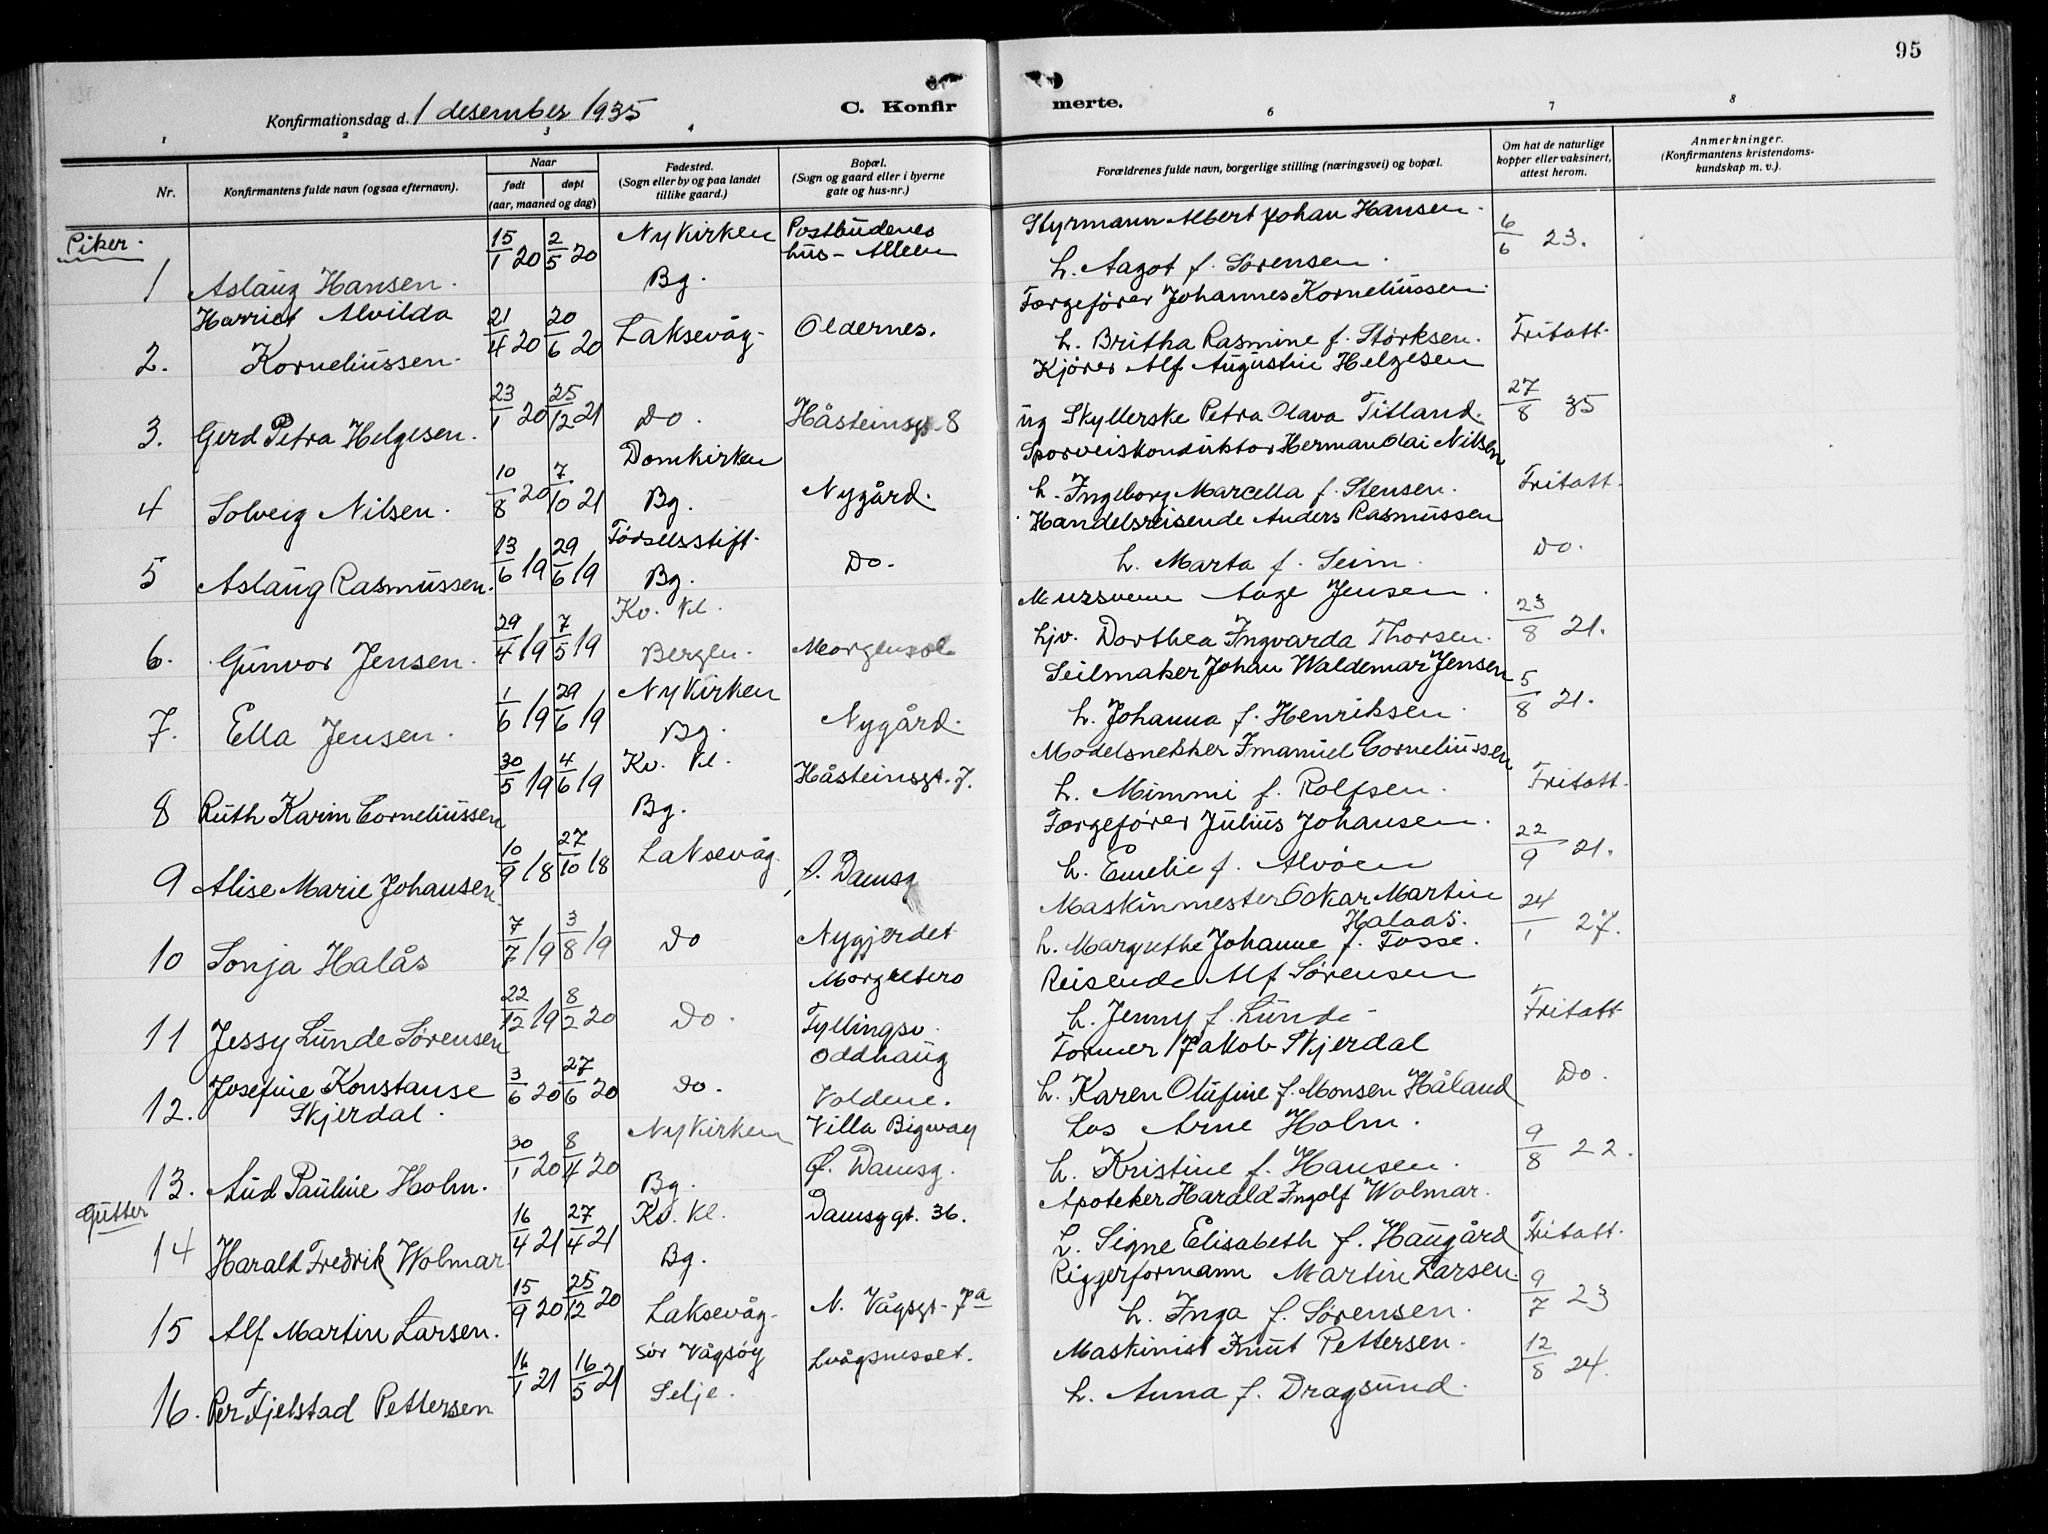 95
Konfirmationsdag d. 1 desember 1935
C. Konfirmerte.
1 2 3 4 6 7 8
Nr.
Konfirmantens fulde navn (ogsaa efternavn).
Naar
født
døpt
(aar, maaned og dag)
Fødested.
(Sogn eller by og paa landet
tillike gaard.)
Bopæl.
(Sogn og gaard eller i byerne
gate og hus-nr.)
Forældrenes fulde navn, borgerlige stilling (næringsvei) og bopæl.
Om hat de naturlige
kopper eller vaksinert,
attest herom.
Anmerkninger.
(Konfirmantens kristendoms-
kundskap m. v.).
Piker.
1 Aslaug Hansen. 15/1 20 2/5 20 Nykirken Bg. Postbudenes hus - Alleen Styrmann Albert Johan Hansen. h. Aagot f. Sørensen. 6/6 23.
2. Harriet Alvilda Korneliussen. 21/4 20 20/6 20 Laksevåg. Oldernes. Førgefører Johannes Korneliussen. h. Britha Rasmine f. Størksen. Fritatt.
3. Gerd Petra Helgesen. 23/1 20 25/12 21 Do. Håsteinsgt. 8 Kjører Alf Augustin Helgesen ug Skyllerske Petra Olava Titland. 27/8 35
4 Solveig Nilsen. 10/8 20 7/10 21 Domkirken Bg. Nygård. Sporveiskonduktør Herman Olai Nilsen h. Ingeborg Marcella f. Stensen. Fritatt.
5 Aslaug Rasmussen. 13/6 19 29/6 19 Fødselsstift. Bg. Do. Handelsreisende Anders Rasmussen h. Marta f. Seim. Do.
6. Gunvor Jensen. 29/4 19 7/5 19 Kv. Kl. Bergen. Morgensol Mursvenn Aage Jensen. hjv. Dorthea Ingvarda Thorsen. 23/8 21.
7. Ella Jensen. 1/6 19 29/6 19 Nykirken Bg. Nygård. Seilmaker Johan Waldemar Jensen h. Johanna f. Henriksen. 5/8 21.
8 Ruth Karin Corneliussen 30/5 19 4/6 19 Kv. Kl. Bg. Håsteinsgt. 7. Modelsnekker Imanuel Corneliussen h. Mimmi f. Rolfsen. Fritatt.
9 Alise Marie Johansen. 10/9 18 27/10 18 Laksevåg. Ø. Damsg Førgefører Julius Johansen. h. Emelie f. Alvöen 22/9 21.
10 Sonja Halås 7/7 19 3/8 19 Do Nygjerdet Maskinmester Oskar Martin Halaas. h. Margrethe Johanne f. Fosse. 24/1 27.
11 Jessy Lunde Sørensen 22/12 19 8/2 20 Do. Morgenero Fyllingsv. Reisende Alf Sørensen h. Jenny f. Lunde Fritatt
12. Josefine Konstanse Skjerdal. 3/6 20 27/6 20 Do. Oddhaug Voldene. Former Jakob Skjerdal h. Karen Olufine f. Monsen Håland Do.
13. Aud Pauline Holm. 30/1 20 8/4 20 Nykirken Bg. Villa Bigway Ø. Damsg. Los Arne Holm. h. Kristine f. Hansen. 9/8 22.
Gutter
14 Harald Fredrik Wolmar 16/4 21 27/4 21 Kv. Kl. Bg. Damsggt. 36. Apoteker Harald Ingolf Wolmar. h. Signe Elisabeth f. Haugård Fritatt.
15 Alf Martin Larsen. 15/9 20 25/12 20 Laksevåg. N. Vågsgt. 7a Riggerformann Martin Larsen. h. Inga f. Sørensen. 9/7 23
16. Per Fjelstad Pettersen 16/1 21 16/5 21 Sør Vågsøy Selje. Lvågsnesset. Maskinist Knut Pettersen. h. Anna f. Dragsund. 12/8 24.